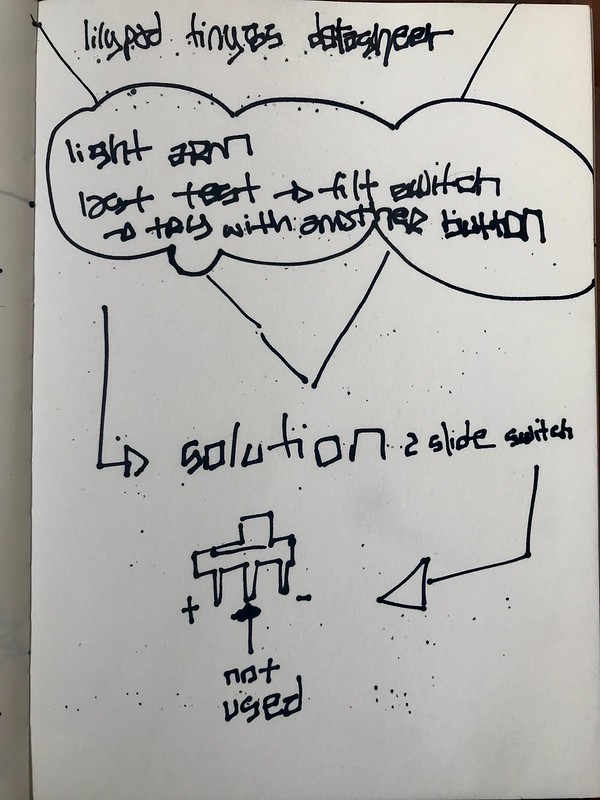 lilypad tiny85 datasheet
light arm
last test → tilt switch
→ try with another button
solution 2 slide switch
+ -
not
used